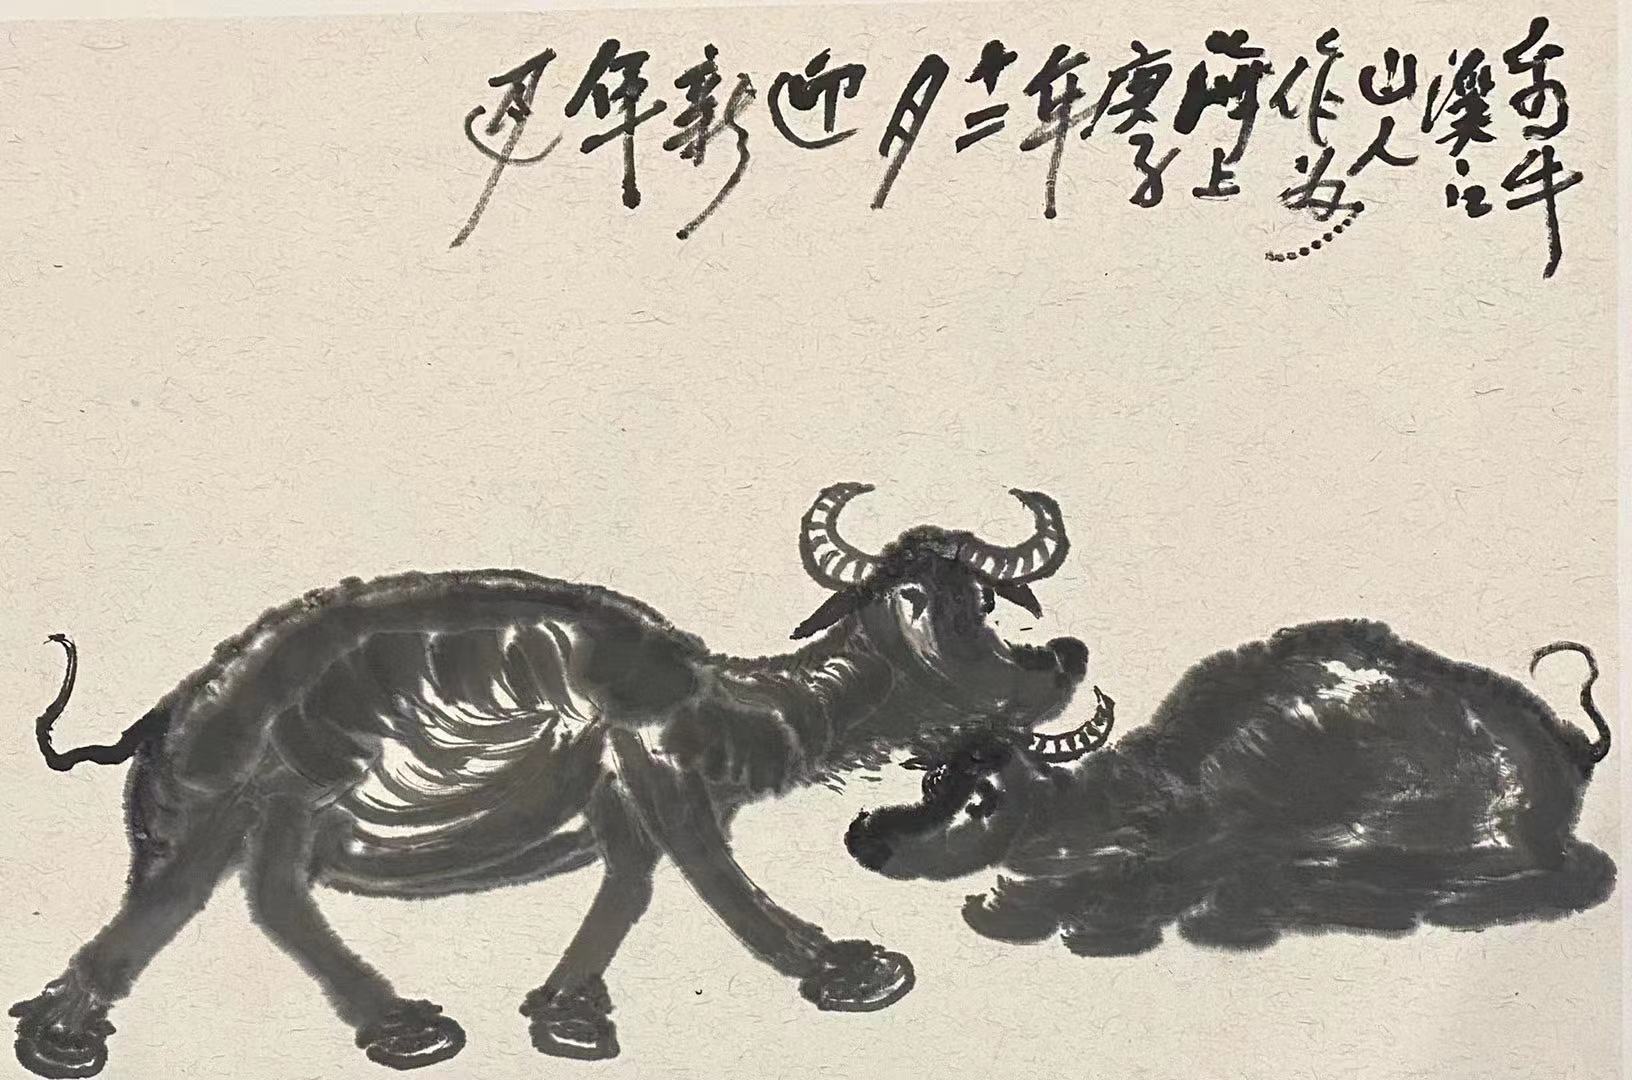 牛
江
山人
作为
海上
庚子
年
十二
月
迎
新
年